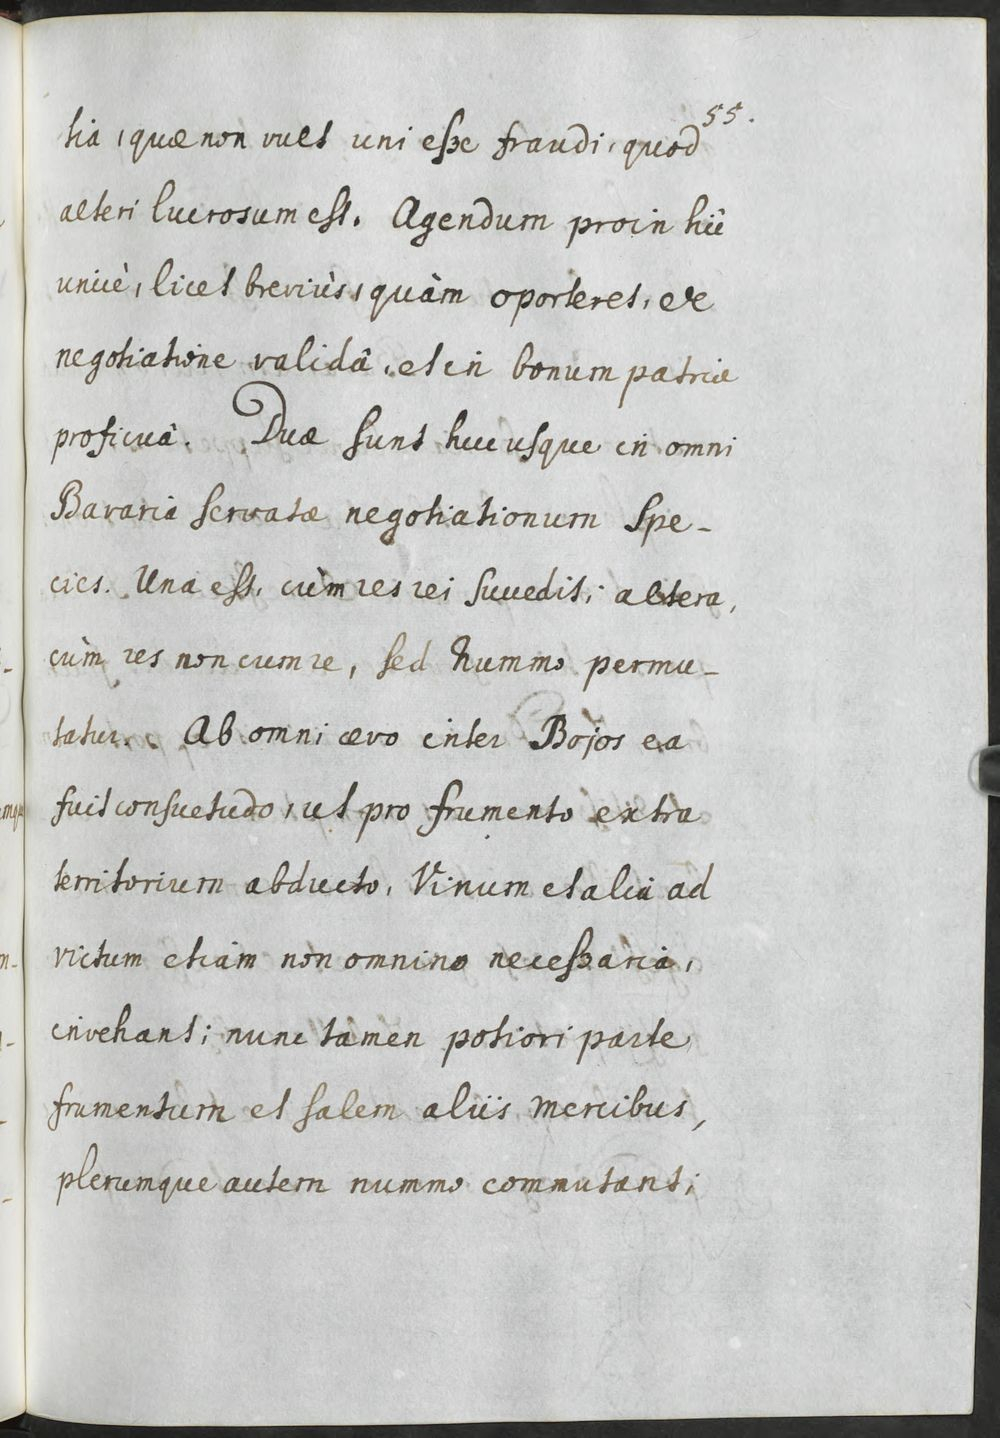 55.
tia, quæ non vult uni eße fraudi, quod
alteri lucrosum est. Agendum proin hic
unicè, licet breviùs, quàm oporteret, de
negotiatione validâ, et in bonum patriæ
proficuâ. Duæ sunt hucusque in omni
Bavaria servatæ negotiationum Spe-
cies. Una est, cùm res rei succedit; altera,
cùm res non cum re, sed Nummo permu-
tatur. Ab omni ævo inter Bojos ea
fuit consuetudo, ut pro frumento extra
territorium abducto, Vinum et alia ad
victum etiam non omnino neceßaria,
invehant; nunc tamen potiori parte
frumentum et salem aliis mercibus,
plerumque autem nummo commutant;